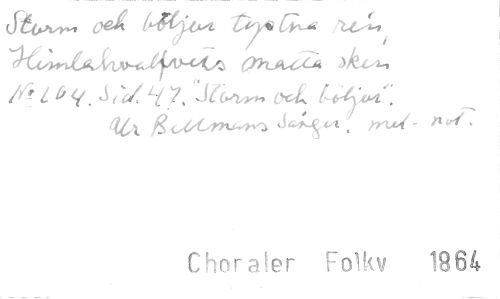 Storm och böljor tystna ren,
Himlahvalfvets matta sken
No 104. Sid. 47. "Storm och böljor".
Ur Bellmans Sånger. mel. not.
Choraler Folkv 1864